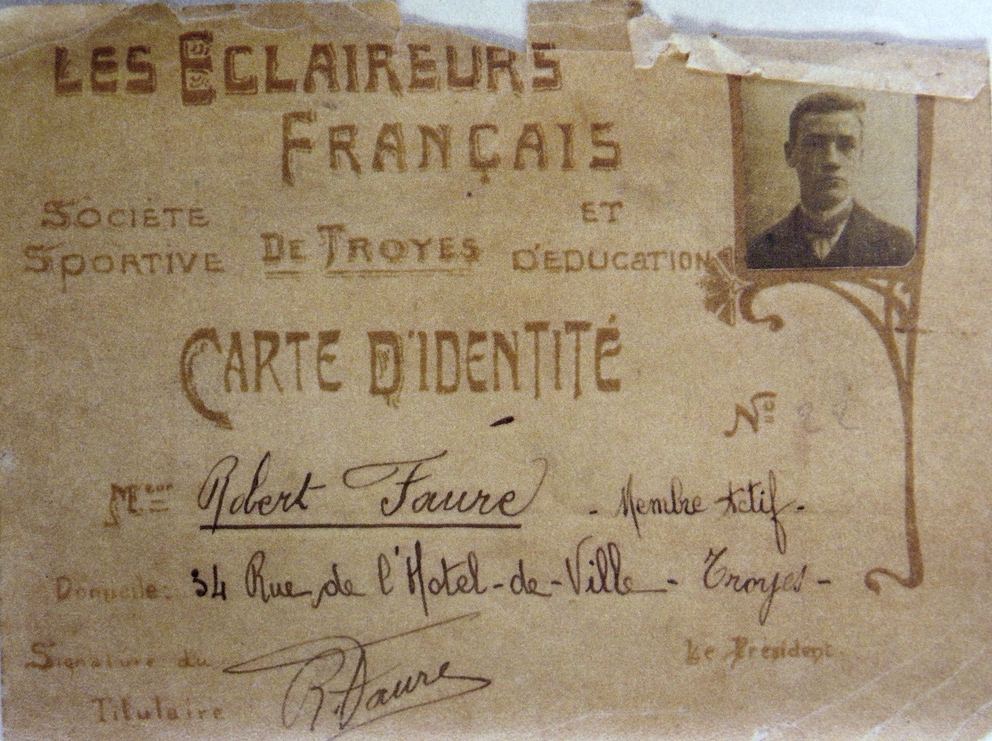 LES ECLAIREURS
FRANÇAIS
SOCIÉTÉ ET
SPORTIVE DE TROYES D'EDUCATION
CARTE D'IDENTITÉ
No 22
Mseur Robert Faure - Membre Actif -
Domicile: 34 Rue de l'Hotel-de-Ville - Troyes -
Signature du R. Faure Le Président
Titulaire